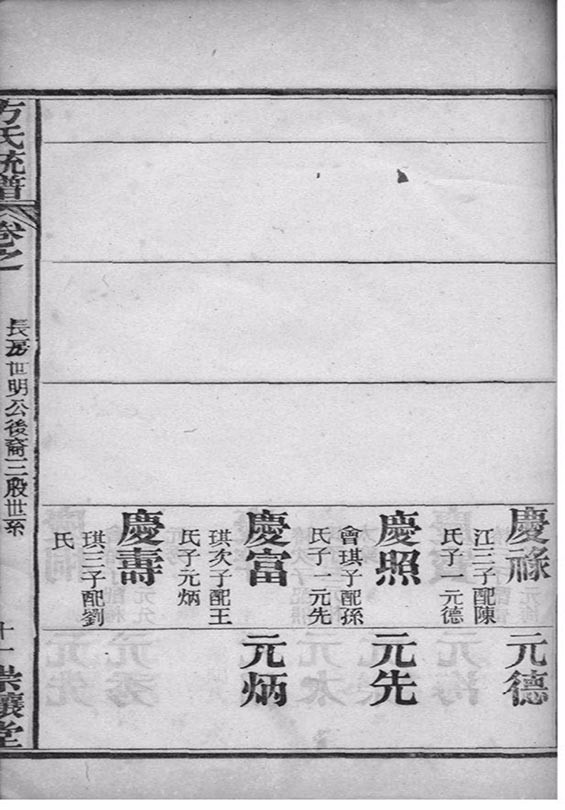 慶祿
江三子配陳
氏子一元德
元德
慶照
會琪子配孫
氏子一元先
元先
慶富
琪次子配王
氏子元炳
元炳
慶壽
琪三子配劉
氏
方氏統譜
卷之一
長房世明公後裔三股世系
十一
崇讓堂